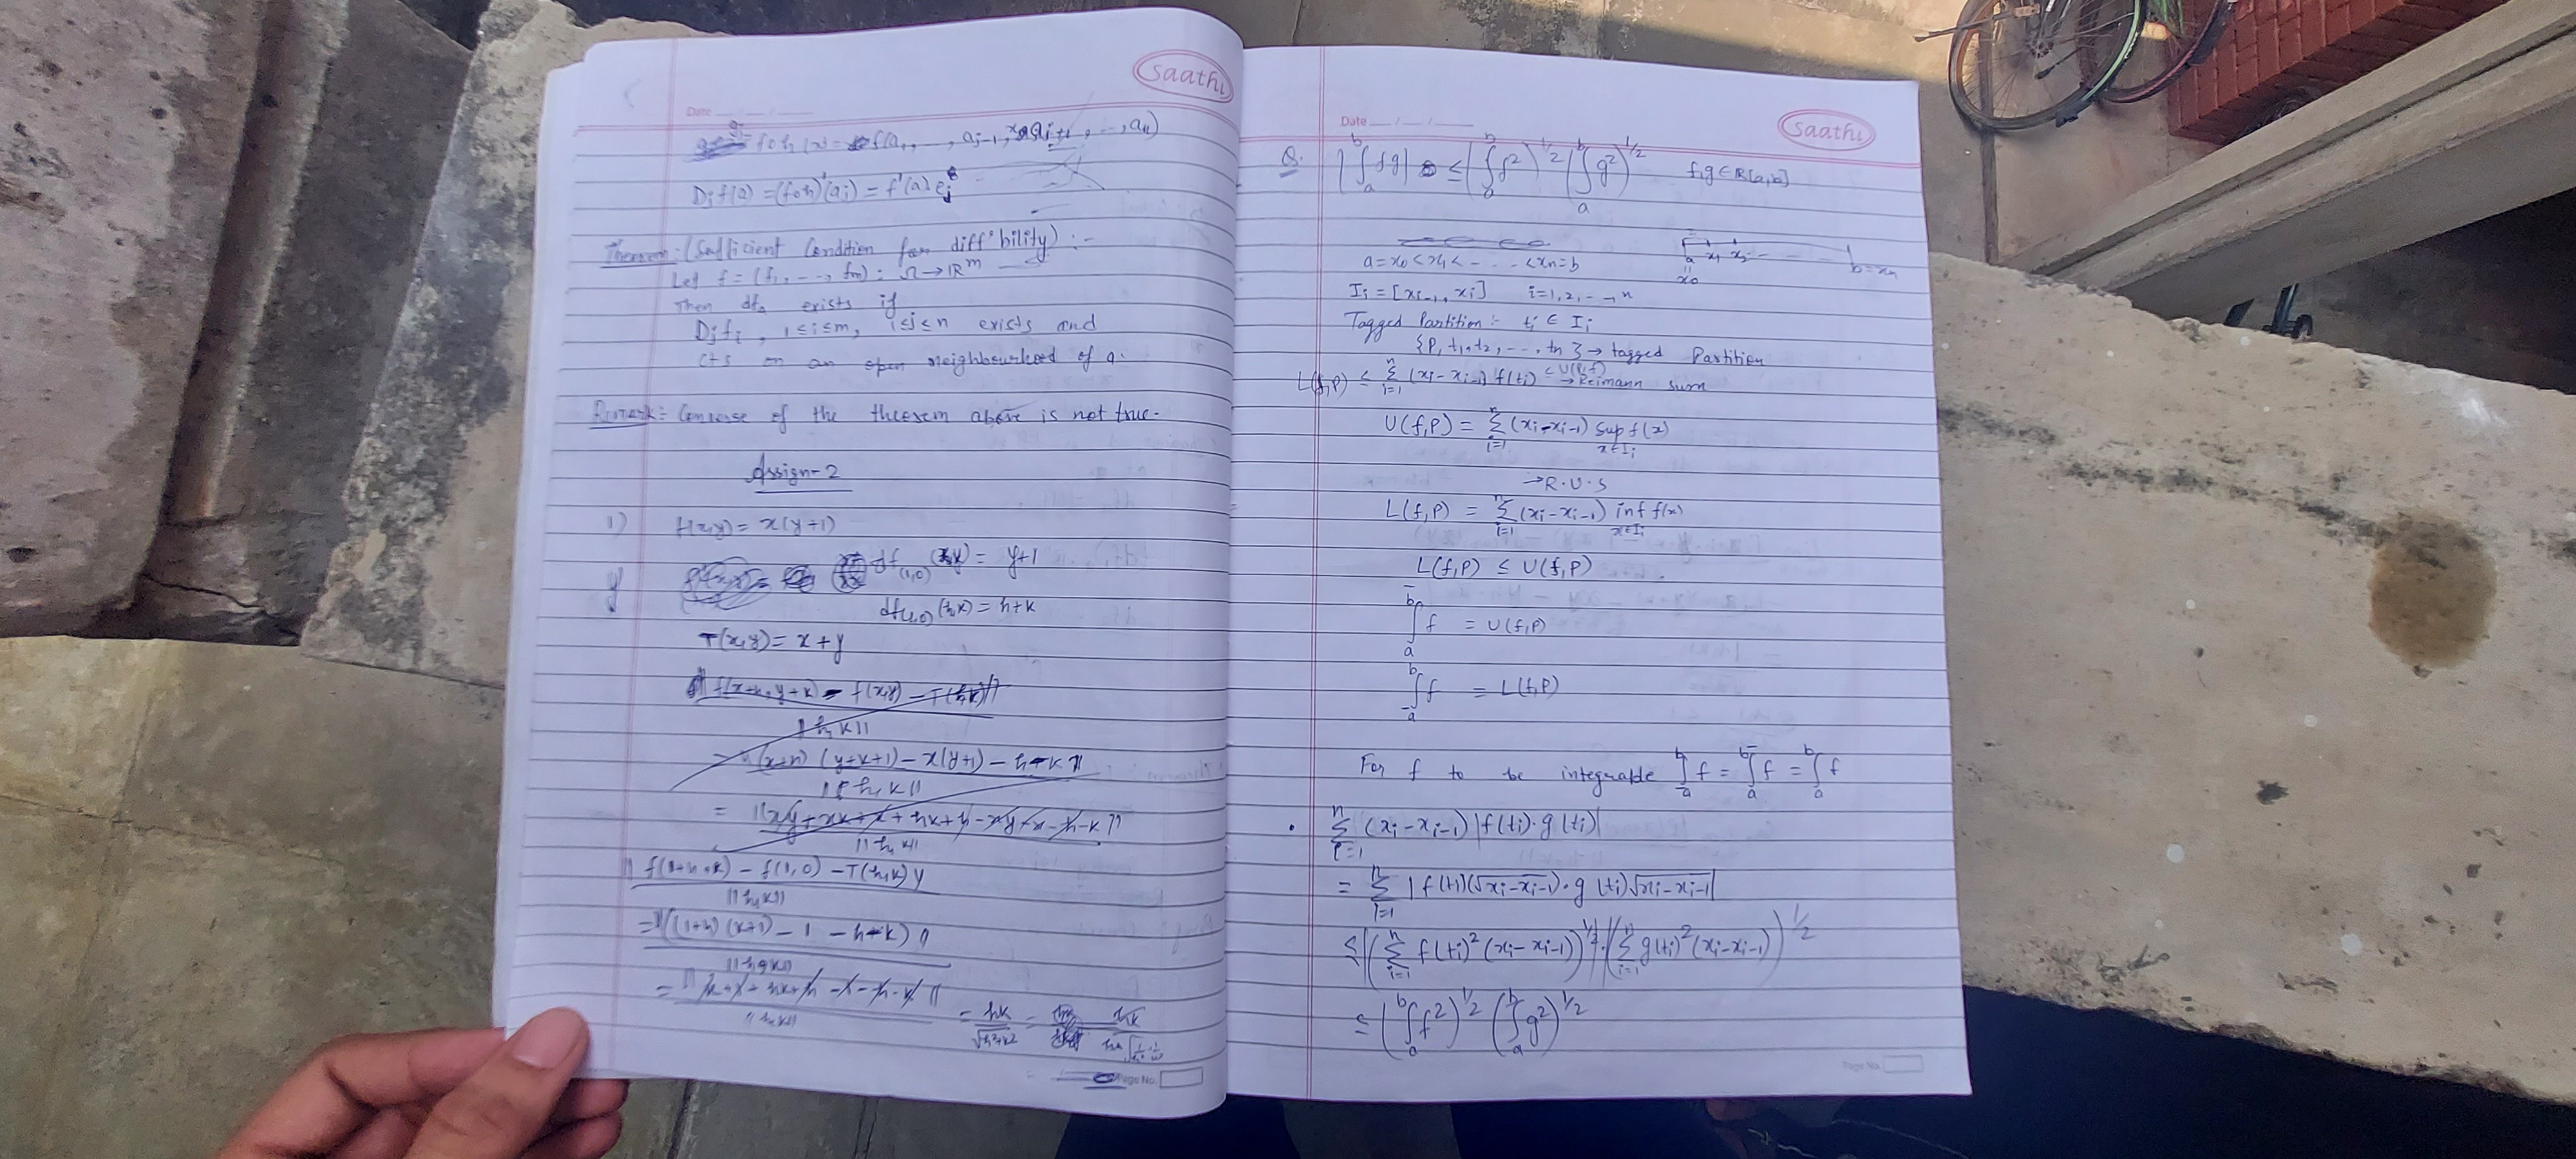 Date
saathi
foh(x) = f(a1, ..., aj-1, x, aj+1, ..., an)
Djf(a) = (foh)'(aj) = f'(a) ej
Theorem:- (Sufficient Condition for diff'bility) :-
Let f = (f1, ..., fm) : Ω → ℝ^m
Then df exists if
Djfi, 1≤i≤m, 1≤j≤n exists and
cts on an open neighbourhood of a.
Remark:- Converse of the theorem above is not true.
Assign-2
1) f(x,y) = x(y+1)
df(1,0) = y+1
df(1,0)(h,k) = h+k
T(x,y) = x+y
|| f(x+h, y+k) - f(x,y) - T(h,k) ||
||h,k||
(x+h)(y+k+1) - x(y+1) - h-k ||
||h,k||
= || xy + xk + x + hk + h - xy - x - h - k ||
||h,k||
|| f(1+h, k) - f(1,0) - T(h,k) ||
||h,k||
= || (1+h)(k+1) - 1 - h - k ||
||h,k||
= || k + 1 + hk + h - 1 - h - k || = hk/√h²+k² =
||h,k||
Page No.
Date
saathi
Q. |∫_a^b fg| ≤ (∫_a^b f²)^1/2 (∫_a^b g²)^1/2 f,g ∈ R[a,b]
a = x0 < x1 < ... < xn = b
Ii = [xi-1, xi] i = 1, 2, ..., n
Tagged Partition :- ti ∈ Ii
{P, t1, t2, ..., tn} → tagged Partition
L(f,P) ≤ Σ_{i=1}^n (xi - xi-1) f(ti) ≤ U(P,f) → Reimann sum
U(f,P) = Σ_{i=1}^n (xi - xi-1) sup f(x) x∈Ii
→ R.U.S
L(f,P) = Σ_{i=1}^n (xi - xi-1) inf f(x) x∈Ii
L(f,P) ≤ U(f,P)
∫_a^b f = U(f,P)
∫_a^b f = L(f,P)
For f to be integrable ∫_a^b f = ∫_a^b f = ∫_a^b f
Σ_{i=1}^n (xi - xi-1) |f(ti)·g(ti)|
= Σ_{i=1}^n |f(ti)(√xi - xi-1)·g(ti)√xi - xi-1|
≤ (Σ_{i=1}^n f(ti)² (xi - xi-1))^1/2 (Σ_{i=1}^n g(ti)² (xi - xi-1))^1/2
≤ (∫_a^b f²)^1/2 (∫_a^b g²)^1/2
Page No.